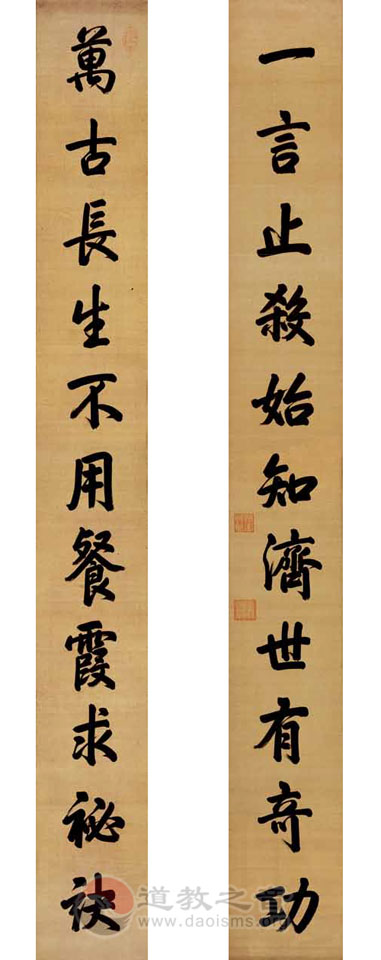 萬古長生不用餐霞求祕訣
一言止殺始知濟世有奇功
道教之音
www.daoisms.org